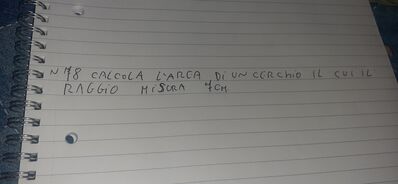 N 78 CALCOLA L'AREA DI UN CERCHIO IL CUI IL
RAGGIO MISURA 7CM